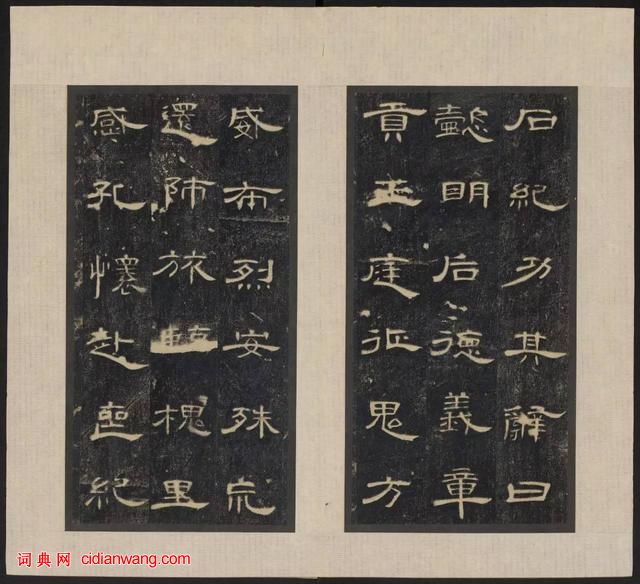 石紀功其辭曰
懿明后德義章
貢王庭征鬼方
威布烈安殊荒
還師旅臨槐里
感孔懷赴喪紀
词典网 cidianwang.com